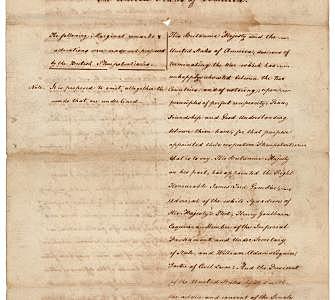 the United States of America.
The following Marginal remarks &
alterations were made and proposed
by the British Plenipotentiaries.
Note. It is proposed to omit, altogether the
words that are underlined
His Britannic Majesty and the
United States of America, desirous of
terminating the War which has
unhappily subsisted between the two
Countries, and of restoring, upon
principles of perfect reciprocity, Peace,
Friendship and Good Understanding
between them, have, for that purpose
appointed their respective Plenipotentiaries,
that is to say, His Britannic Majesty
on his part, has appointed the Right
Honourable James Lord Gambier,
Admiral of the white Squadron of
His Majesty's Fleet, Henry Goulburn
Esquire a Member of the Imperial
Parliament and Under Secretary
of State, and William Adams Esquire
Doctor of Civil Laws: And the President
of the United States, by &
the advice and consent of the Senate